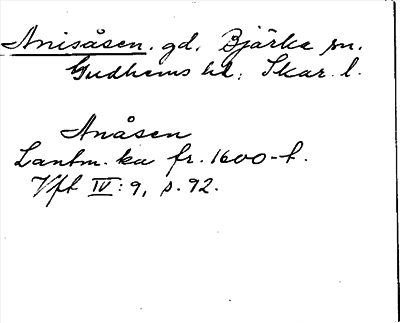 Anisåsen. gd. Bjärke sn.
Gudhems hd. Skar. l.
Anåsen
Lantm. ka fr. 1600-t.
Vft IV: 9, s. 92.